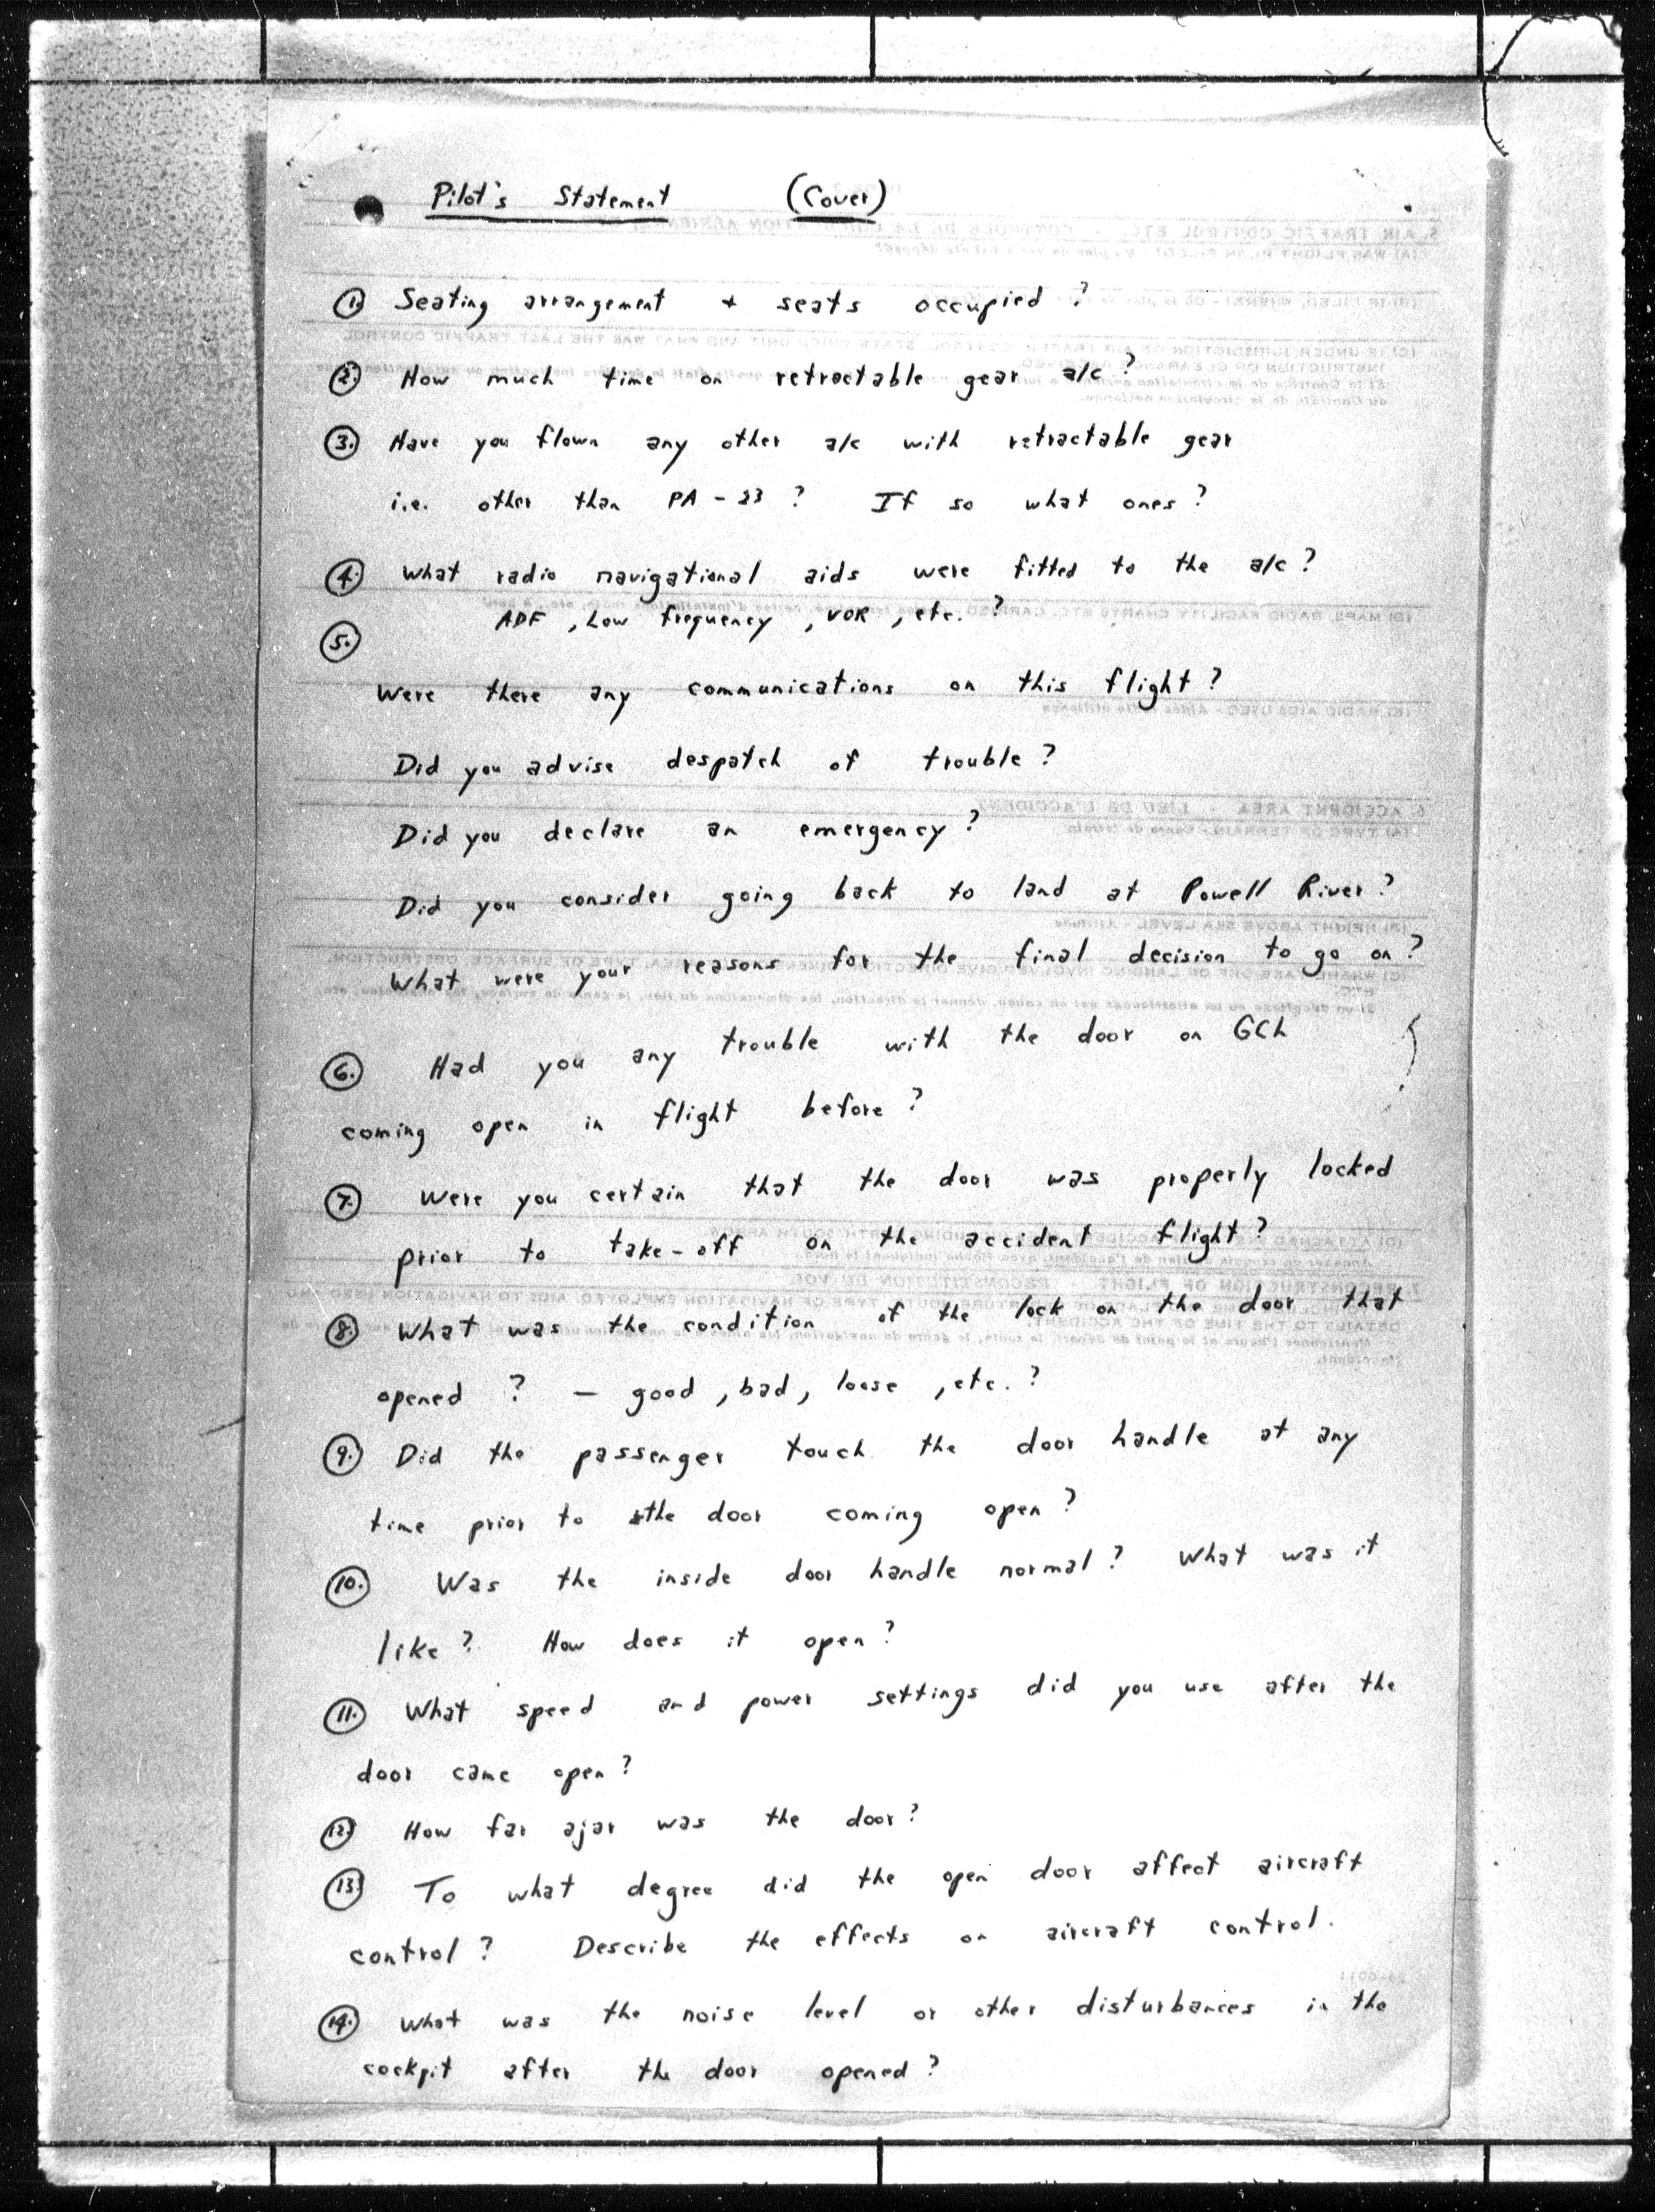 Pilot's Statement (Cover)
1. Seating arrangement + seats occupied?
2. How much time on retractable gear a/c?
3. Have you flown any other a/c with retractable gear
i.e. other than PA-23? If so what ones?
4. What radio navigational aids were fitted to the a/c?
ADF, Low frequency, VOR, etc.?
5.
Were there any communications on this flight?
Did you advise despatch of trouble?
Did you declare an emergency?
Did you consider going back to land at Powell River?
What were your reasons for the final decision to go on?
6. Had you any trouble with the door on GCh
coming open in flight before?
7. Were you certain that the door was properly locked
prior to take-off on the accident flight?
8. What was the condition of the lock on the door that
opened? - good, bad, loose, etc.?
9. Did the passenger touch the door handle at any
time prior to the door coming open?
10. Was the inside door handle normal? What was it
like? How does it open?
11. What speed and power settings did you use after the
door came open?
12. How far ajar was the door?
13. To what degree did the open door affect aircraft
control? Describe the effects on aircraft control.
14. What was the noise level or other disturbances in the
cockpit after the door opened?